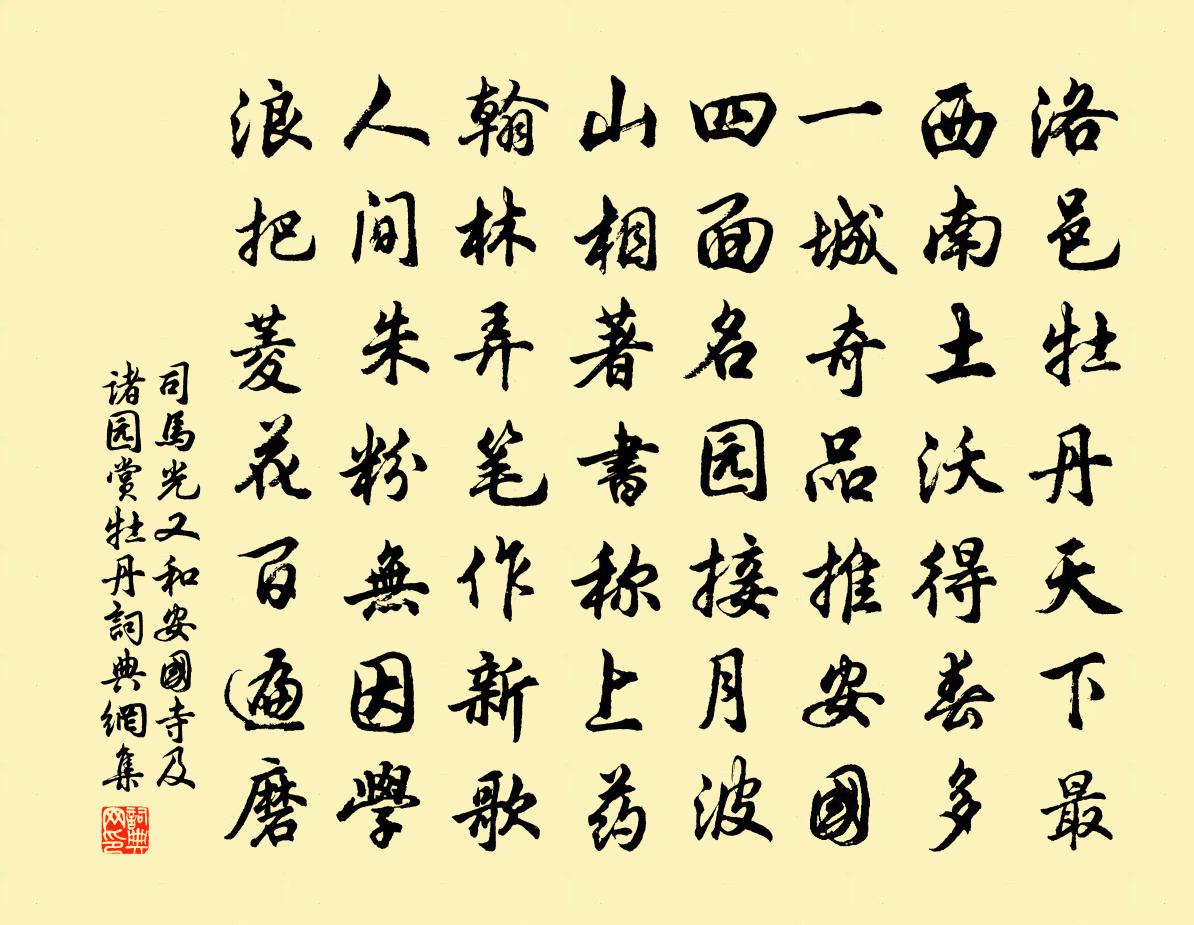 洛邑牡丹天下最
西南土沃得春多
一城奇品推安國
四面名园接月波
山相著書称上药
翰林弄笔作新歌
人间朱粉無因學
浪把菱花百遍磨
司馬光又和安國寺及
诸园赏牡丹詞典網集
詞典
网印